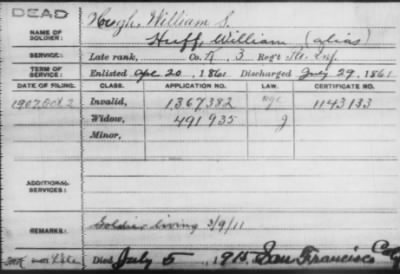 DEAD
Hugh, William S.
NAME OF SOLDIER:
Huff, William (alias)
SERVICE:
Late rank, Co. K, 3 Reg't Inf.
TERM OF SERVICE:
Enlisted Apr 20, 1861 Discharged July 29, 1861
DATE OF FILING. CLASS. APPLICATION NO. LAW. CERTIFICATE NO.
1907 Oct 2 Invalid, 1,367,382 1143133
Widow, 491935
Minor,
ADDITIONAL SERVICES:
REMARKS:
Soldier living 3/9/11
Died July 5, San Francisco